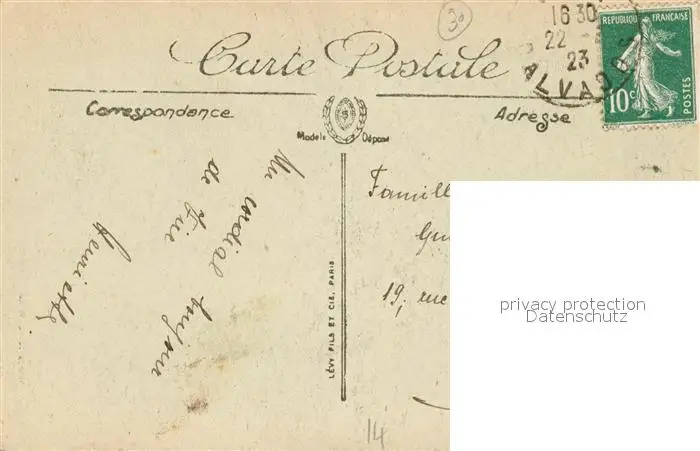 30
16 30
22 -
23
ALVADOS
REPUBLIQUE FRANÇAISE
10c
POSTES
Carte Postale
Correspondance
Adresse
Modèle Déposé
Un cordial bonjour
de
Henriette
LÉVY FILS ET CIE, PARIS
Famill
Gu
19, rue
14
privacy protection
Datenschutz